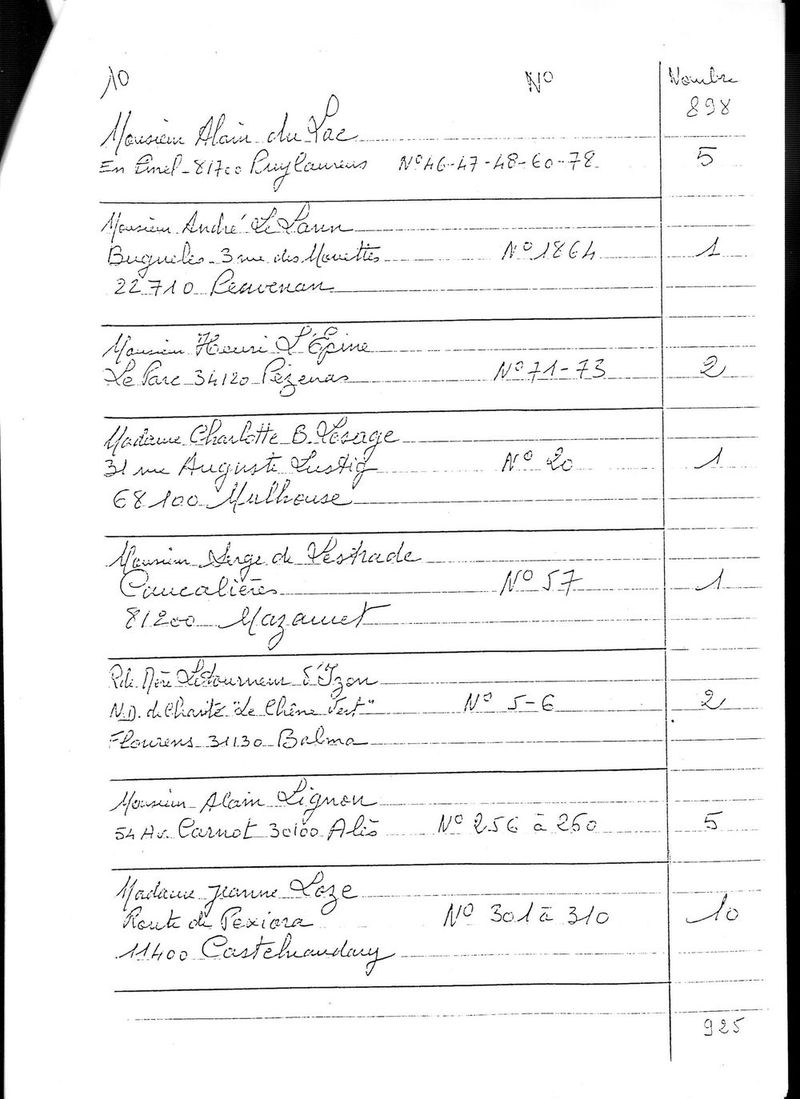 10 N° Nombre
898
Monsieur Alain du Lac
En Pinel - 81700 Puylaurens N° 46-47-48-60-78 5
Monsieur André Le Lann
Buguélès - 3 rue des Mouettes N° 1864 1
22710 Penvenan
Monsieur Henri L'Épine
Le Parc 34120 Pézenas N° 71-73 2
Madame Charlotte B. Lesage
31 rue Auguste Lustig N° 20 1
68100 Mulhouse
Monsieur Serge de Lestrade
Caucalières N° 57 1
81200 Mazamet
Rde Mère Letourneur d'Izon
N.D. de Charité "Le Chêne Vert" N° 5-6 2
Flourens 31130 Balma
Monsieur Alain Lignon
54 Av. Carnot 30100 Alès N° 256 à 260 5
Madame Jeanne Loze
Route de Pexiora N° 301 à 310 10
11400 Castelnaudary
925